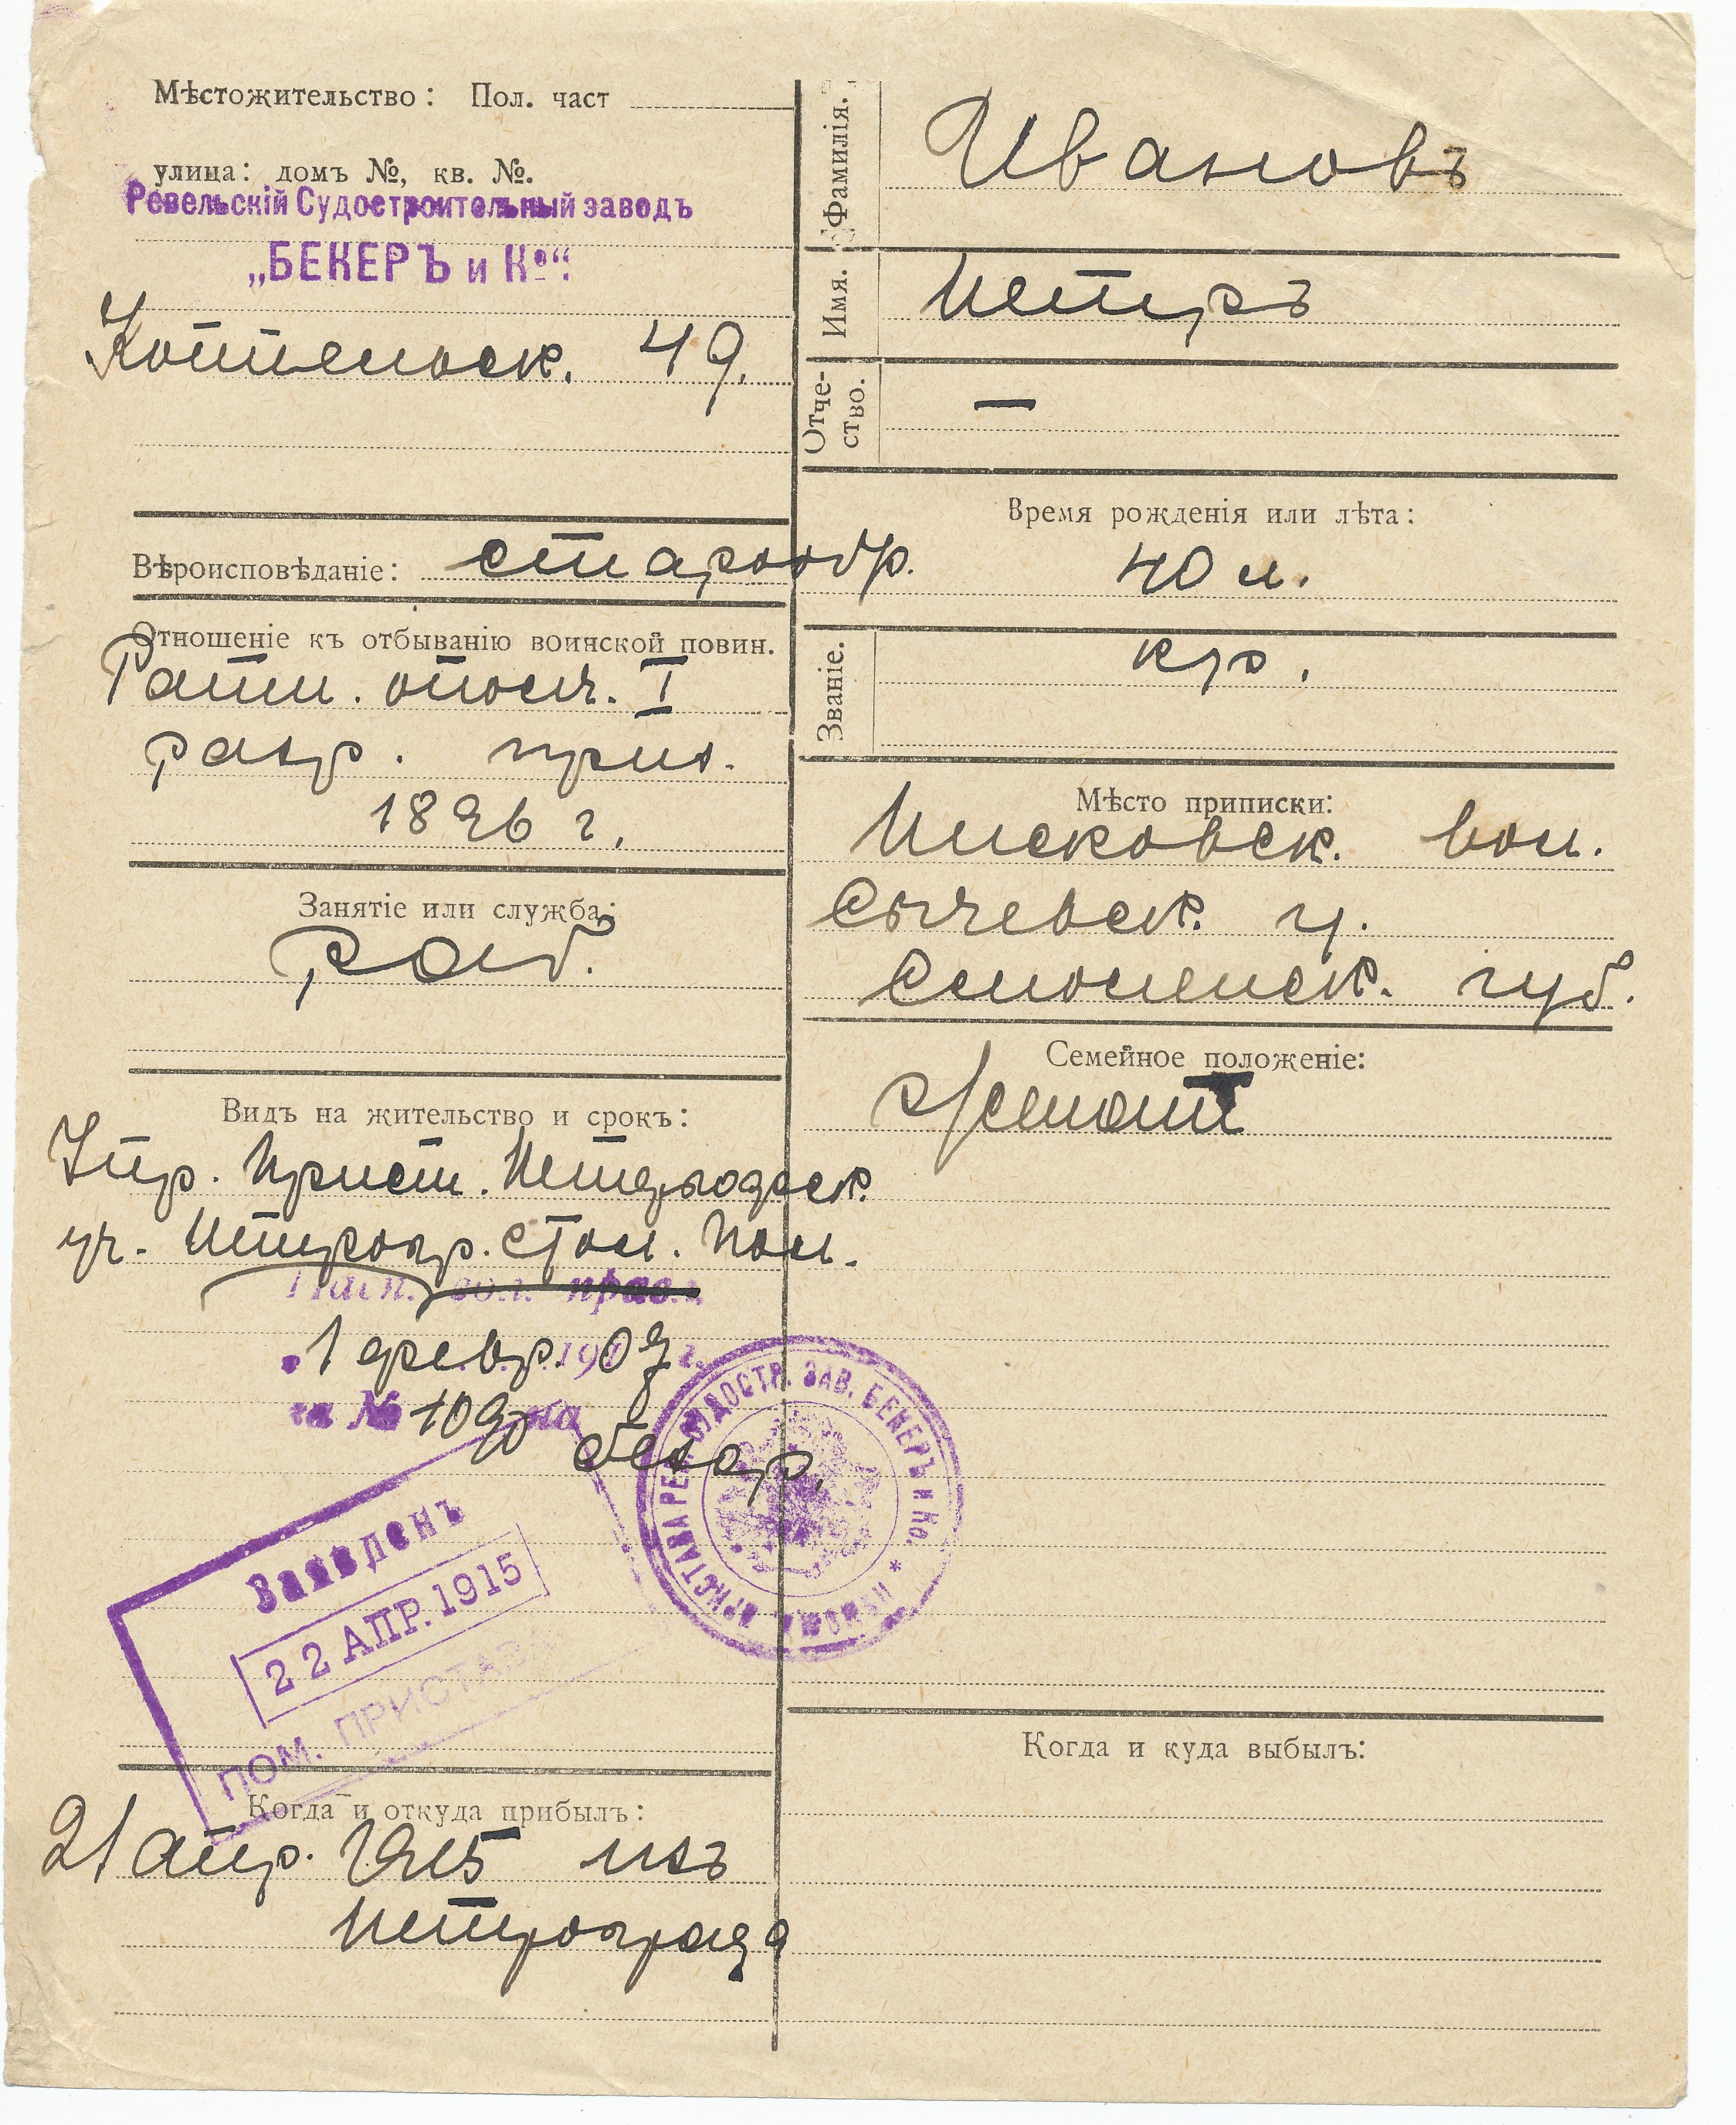 Мѣстожительство: Пол. част
улица: домъ №, кв. №.
Ревельскій Судостроительный заводъ
„БЕКЕРЪ и Кº“.
Коппельск. 49.
Вѣроисповѣданіе: старообр.
Отношеніе къ отбыванію воинской повин.
Ратн. ополч. I
разр. приз.
1896 г.
Занятіе или служба:
раб.
Видъ на жительство и срокъ:
Упр. Прист. Петергофск.
уч. Петрогр. стол. Пол.
1 февр. 1909 г.
за № 1090 на безср.
Заявленъ
22 АПР. 1915
ПОМ. ПРИСТАВА
Когда и откуда прибылъ:
21 апр. 1915 изъ
Петрограда
Фамилія.
Ивановъ
Имя.
Петръ
Отче-
ство.
—
Время рожденія или лѣта:
40 л.
Званіе.
кр.
Мѣсто приписки:
вол.
Сычевск. у.
Смоленск. губ.
Семейное положеніе:
женат
ПРИСТАВА РЕВ. СУДОСТР. ЗАВ. БЕКЕРЪ и Ко. *
Когда и куда выбылъ: